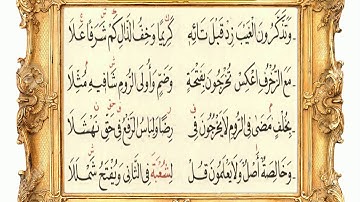 وَتَذَّكَّرُونَ الْغَيْبَ زِدْ قَبْلَ تَائِهِ كَرِيمًا وَخِفُّ الذَّالِ كَمْ شَرَفًا عَلَا
مَعَ الزُّخْرُفِ اعْكِسْ تُخْرَجُونَ بِفَتْحَةٍ وَضَمٍّ وَأُولَى الرُّومِ شَافِيهِ مُثِّلَا
بِخُلْفٍ مَضَى فِي الرُّومِ لَا يَخْرُجُونَ فِي رِضًا وَلِبَاسُ الرَّفْعُ فِي حَقِّ نَهْشَلَا
وَخَالِصَةٌ أَصْلٌ وَلَا يَعْلَمُونَ قُلْ لِشُعْبَةَ فِي الثَّانِي وَيُفْتَحُ شَمْلَلَا